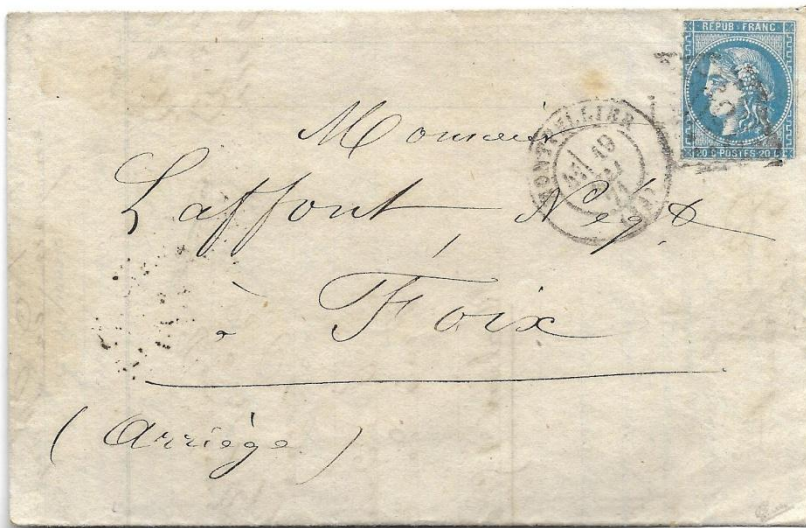 REPUB·FRANC
20 C·POSTES·20
MONTPELLIER
19
71
Monsieur
Laffont Négt
à Foix
(Arriège)